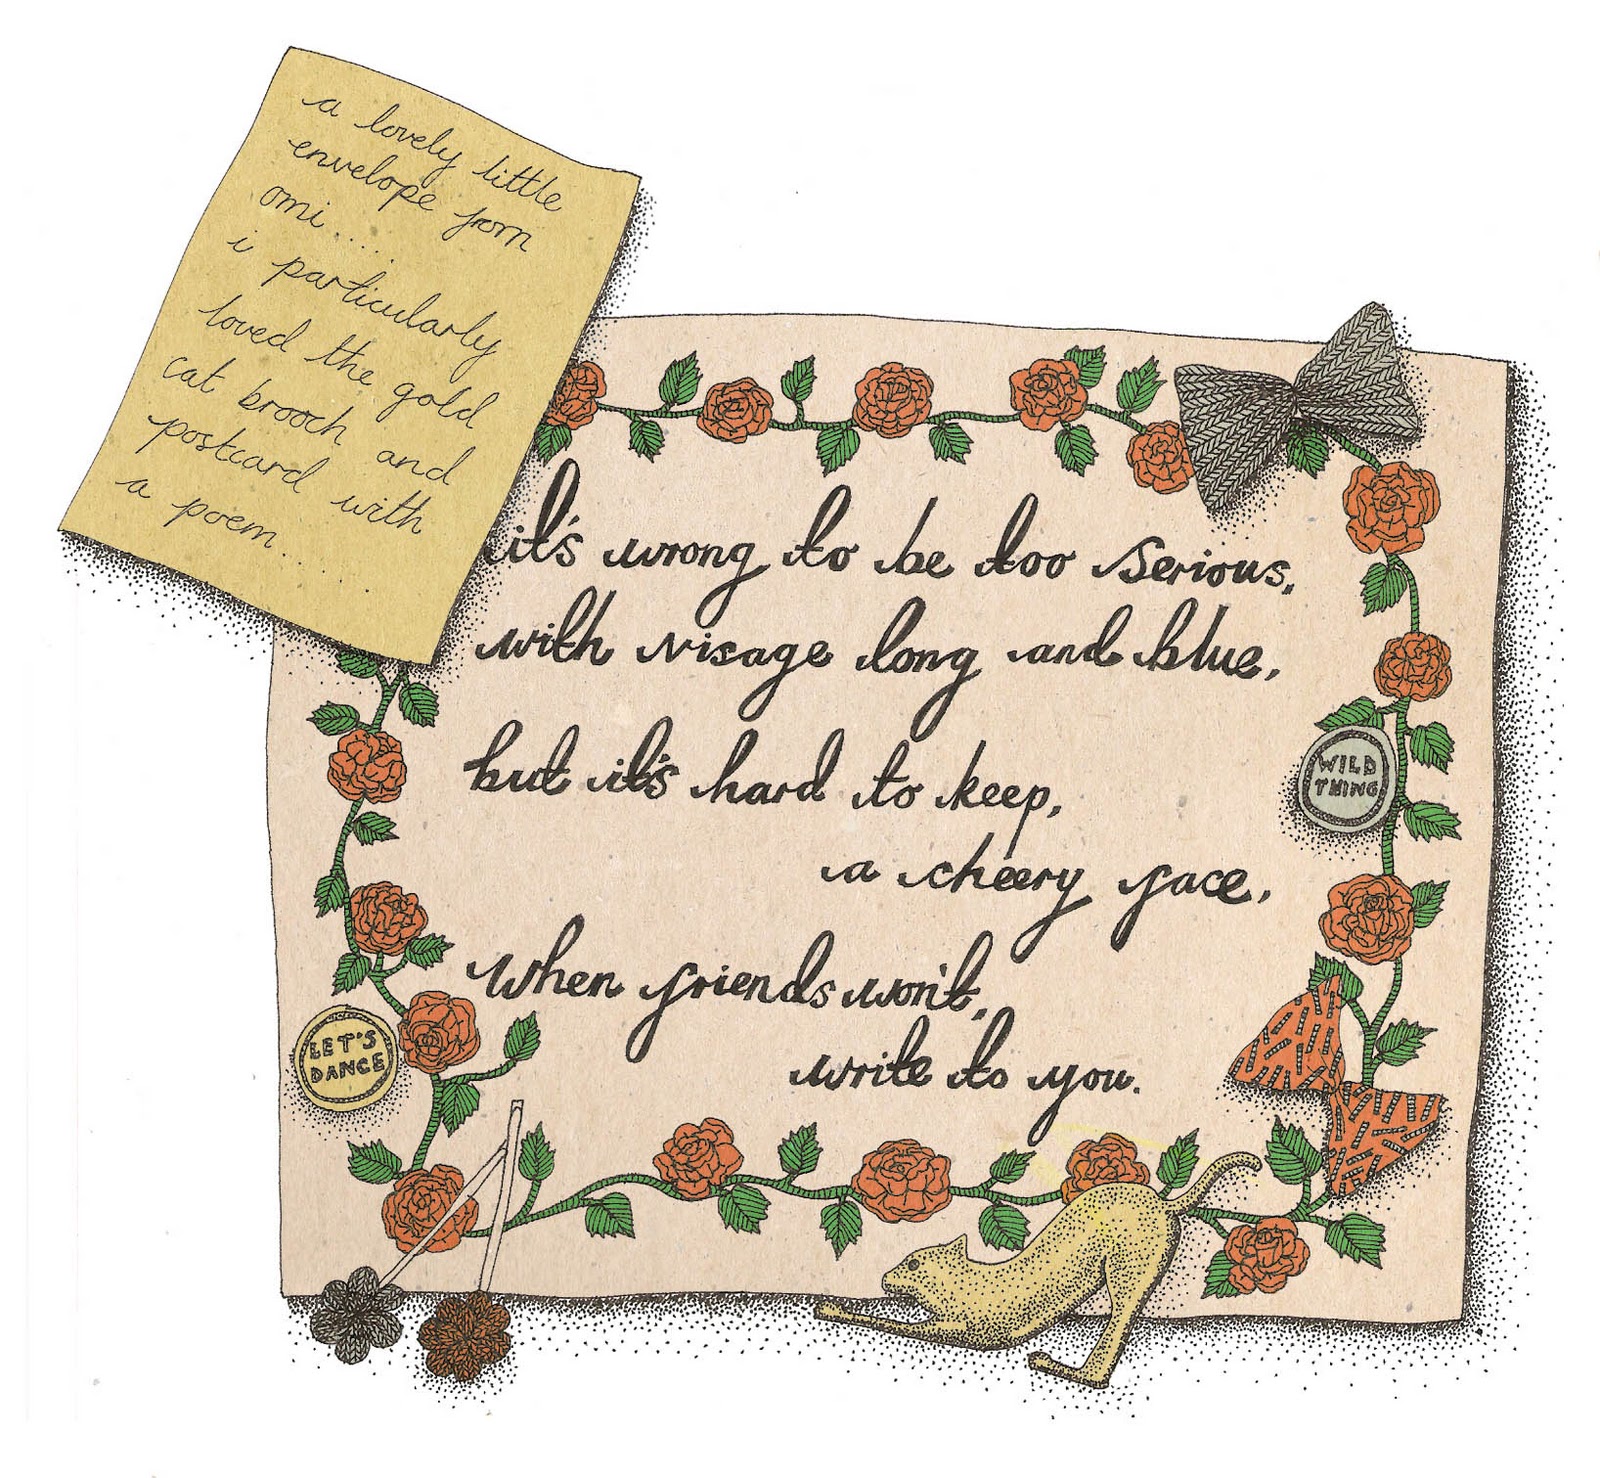 a lovely little
envelope from
omi.....
i particularly
loved the gold
cat brooch and
postcard with
a poem......
it's wrong to be too serious,
with visage long and blue,
but it's hard to keep,
a cheery face,
when friends won't,
write to you.
WILD
THING
LET'S
DANCE